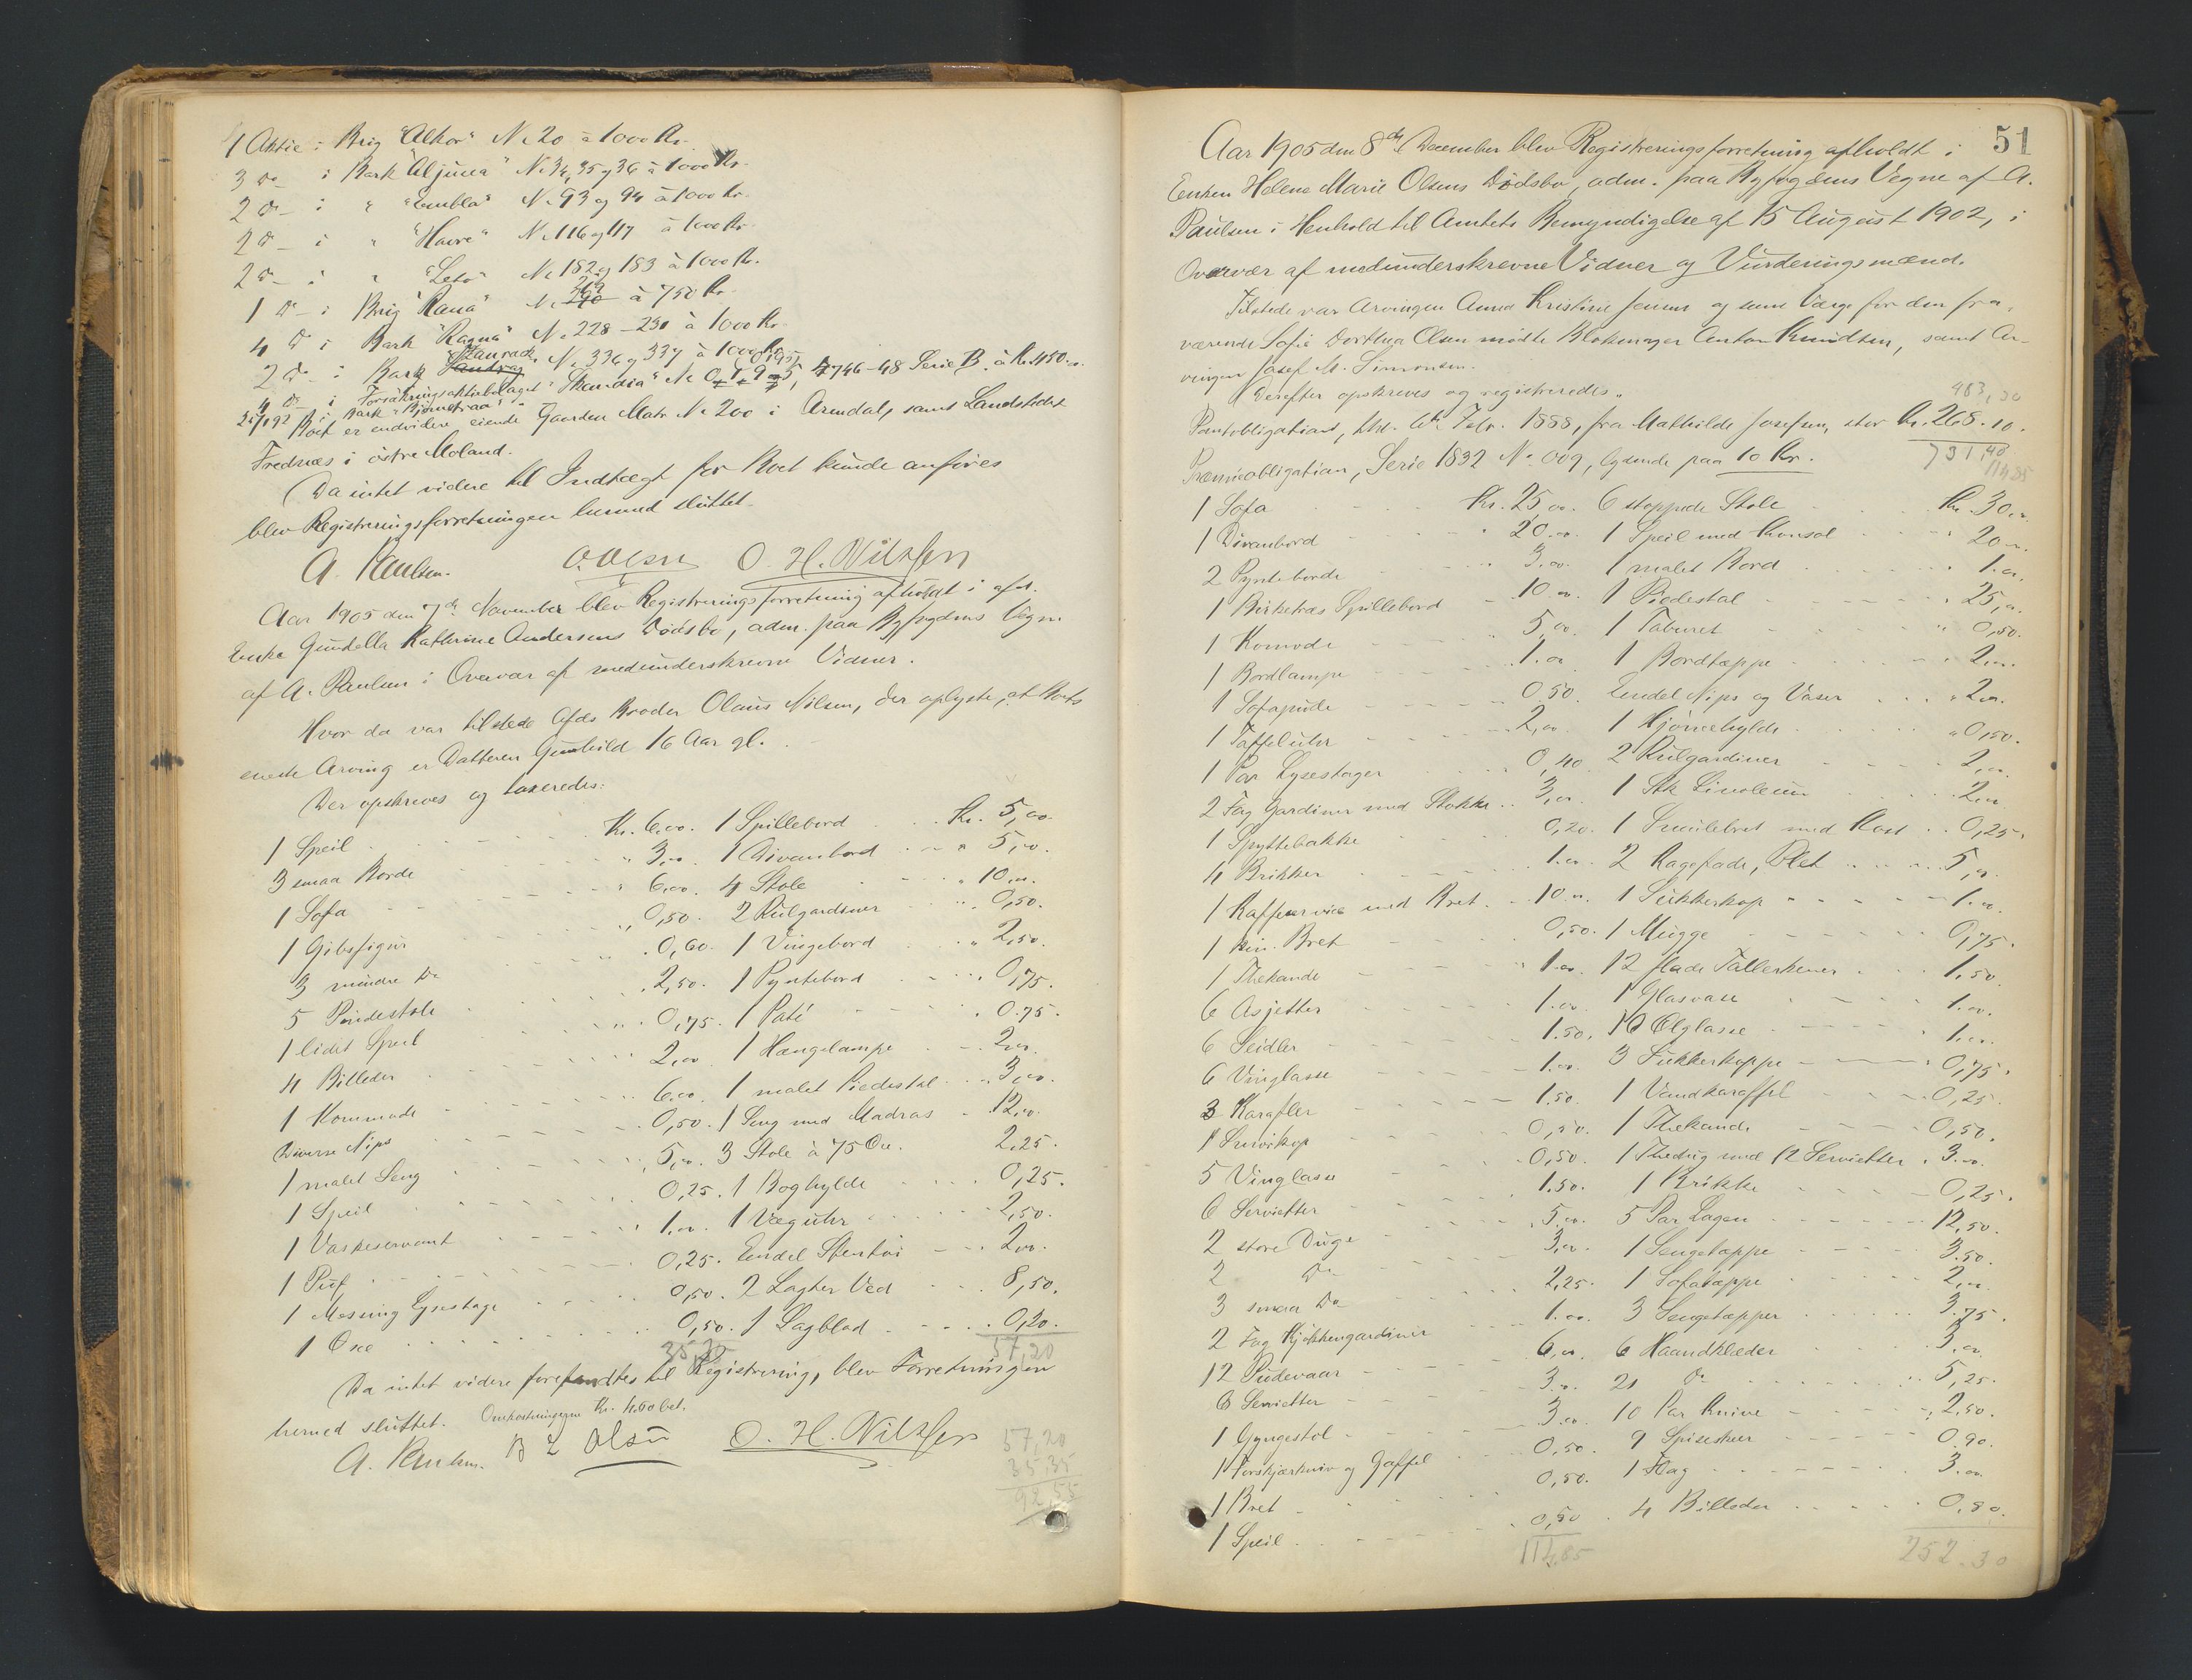 1 Aktie i Brig "Alkor" No 20 à 1000 Kr.
3 Do i Bark "Aljuca" No 34, 35 og 36 à 1000 Kr.
2 Do i " "Embla" No 93 og 94 à 1000 Kr.
2 Do i " "Havre" No 116 og 117 à 1000 Kr.
2 Do i " "Leto" No 182 og 183 à 1000 Kr.
1 Do i Brig "Rana" No à 750 Kr.
4 Do i Bark "Ragna" No 228-230 à 1000 Kr.
2 Do i Bark No 336 og 337 à 1000 Kr.
4 Do i Forsäkringsaktiebolaget "Skandia" No 746-48 Serie B. à Kr. 450.
i Bark "Bjørnstraa"
Boet er endvidere eiende Gaarden Matr. No 200 i Arendal, samt Landstedet
Frednæs i østre Moland.
Da intet videre til Indtægt for Boet kunde anføres
blev Registreringsforretningen hermed sluttet.
A. Paulsen. O. Olsen O. H. Nilssen
Aar 1905 den 7de November blev Registreringsforretning afholdt i afd.
Enke Gundella Kathrine Andersens Dødsbo, adm. paa Byfogdens Vegne
af A. Paulsen i Overvær af medunderskrevne Vidner.
Hvor da var tilstede Afdes Broder Olaus Nilsen, der oplyste, at Boets
eneste Arving er Datteren Gunhild 16 Aar gl.
Der opskreves og taxeredes:
1 Speil Kr. 6.00. 1 Spillebord Kr. 5,00
3 smaa Borde " 3,00 1 Divanbord " 5,00.
1 Sofa " 6,00. 4 Stole " 10,00.
1 Gibsfigur " 0,50. 2 Rulgardiner " 0,50.
3 mindre Do " 0,60. 1 Vingebord " 2,50.
5 Pindestole " 2,50. 1 Pyntebord 0,75.
1 lidet Speil " 0,75. 1 Paté 0.75.
4 Billeder 2,00 1 Hængelampe 2,00.
1 Kommode 6.00. 1 malet Piedestal 3,00.
Diverse Nips 0,50. 1 Seng med Madras 12,00.
1 malet Seng 5,00. 3 Stole à 75 Øre. 2,25.
1 Speil 0,25. 1 Boghylde 0,25.
1 Vaskeservant 1.00. 1 Væguhr 2,50.
1 Puf 0,25. Endel Stentøi 2,00.
1 Messing Lysestage 0,50. 2 Lagter Ved 8,50.
1 Øse 0,50. 1 Sagblad 0,20.
35,35 57,20
Da intet videre forefandtes til Registrering, blev Forretningen
hermed sluttet. Omkostningerne Kr. 4.60 bet.
A. Paulsen. Olsen O. H. Nilssen
57,20
35,35
92,55
51
Aar 1905 den 8de December blev Registreringsforretning afholdt i
Enken Helene Marie Olsens Dødsbo, adm. paa Byfogdens Vegne af A.
Paulsen i Henhold til Amtets Bemyndigelse af 15 August 1902, i
Overvær af medunderskrevne Vidner og Vurderingsmænd.
Tilstede var Arvingen Anna Kristine Jensen og som Værge for den fra-
værende Sofie Dorthea Olsen mødte Blokmager Anton Knudsen, samt Ar-
vingen Josef M. Simonsen.
Derefter opskreves og registreredes.
483,30
Pantobligation, thl. Febr. 1888, fra Mathilde Josefsen, stor Kr. 268.10.
Præmieobligation, Serie 1832 No. 009, lydende paa 10 Kr. 731,40
1 Sofa Kr. 25,00. 6 stoppede Stole Kr. 30,00.
1 Divanbord " 20.00. 1 Speil med Konsol 20.00.
2 Pynteborde " 3.00. 1 malet Bord 1.00.
1 Birketræs Spillebord 10.00. 1 Piedestal 25,00.
1 Komode 5,00. 1 Taburet 0,50.
1 Bordlampe 1.00 1 Bordtæppe 2,00.
1 Sofapude 0,50 Endel Nips og Vaser 2,00.
1 Taffeluhr 2,00. 1 Hjørnehylde 0,50.
1 Par Lysestager 0,40 2 Rulgardiner 2,00.
2 Fag Gardiner med Stokke 3,00 1 Stk Linoleum 2,00
1 Spyttebakke 0,20. 1 Smulebret med Kost 0,25.
4 Brikker 1.00. 2 Kagefade, Plet 5,00.
1 Kaffeservice med Bret 10.00. 1 Sukkerkop 1.00.
1 kin. Bret 0,50. 1 Mugge 0,75.
1 Thekande 1.00. 12 flade Tallerkener 1,50
6 Asjetter 1.00. 1 Glasvase 1.00.
6 Seidler 1.50. 10 Ølglasse 1.00.
6 Vinglasse 1.00. 3 Sukkerkoppe 0,75.
3 Karafler 1.50. 1 Vandkaraffel 0,25.
1 Smørkop 0,50. 1 Thekande 0,50.
5 Vinglasse 0,50. 1 Thedug med 12 Servietter 3.00.
6 Servietter 1.50. 1 Brikke 0,25.
2 store Duge 5.00. 5 Par Lagen 12,50.
2 Do 3,00. 1 Sengetæppe 3.50.
3 smaa Do 2,25. 1 Sofatæppe 2,00
2 Fag Kjøkkengardiner 1.00. 3 Sengetæpper 3.75.
12 Pudevaar 6,00. 6 Haandklæder 3,00.
6 Servietter 3.00. 21 Do 5,25.
1 Gyngestol 3.00. 10 Par Knive 2,50.
1 Forskjærkniv og Gaffel 0,50. 9 Spiseskeer 0.90.
1 Bret 0,50. 1 Flag 3.00
1 Speil 0,50. 4 Billeder 0,80.
114,85 252.30